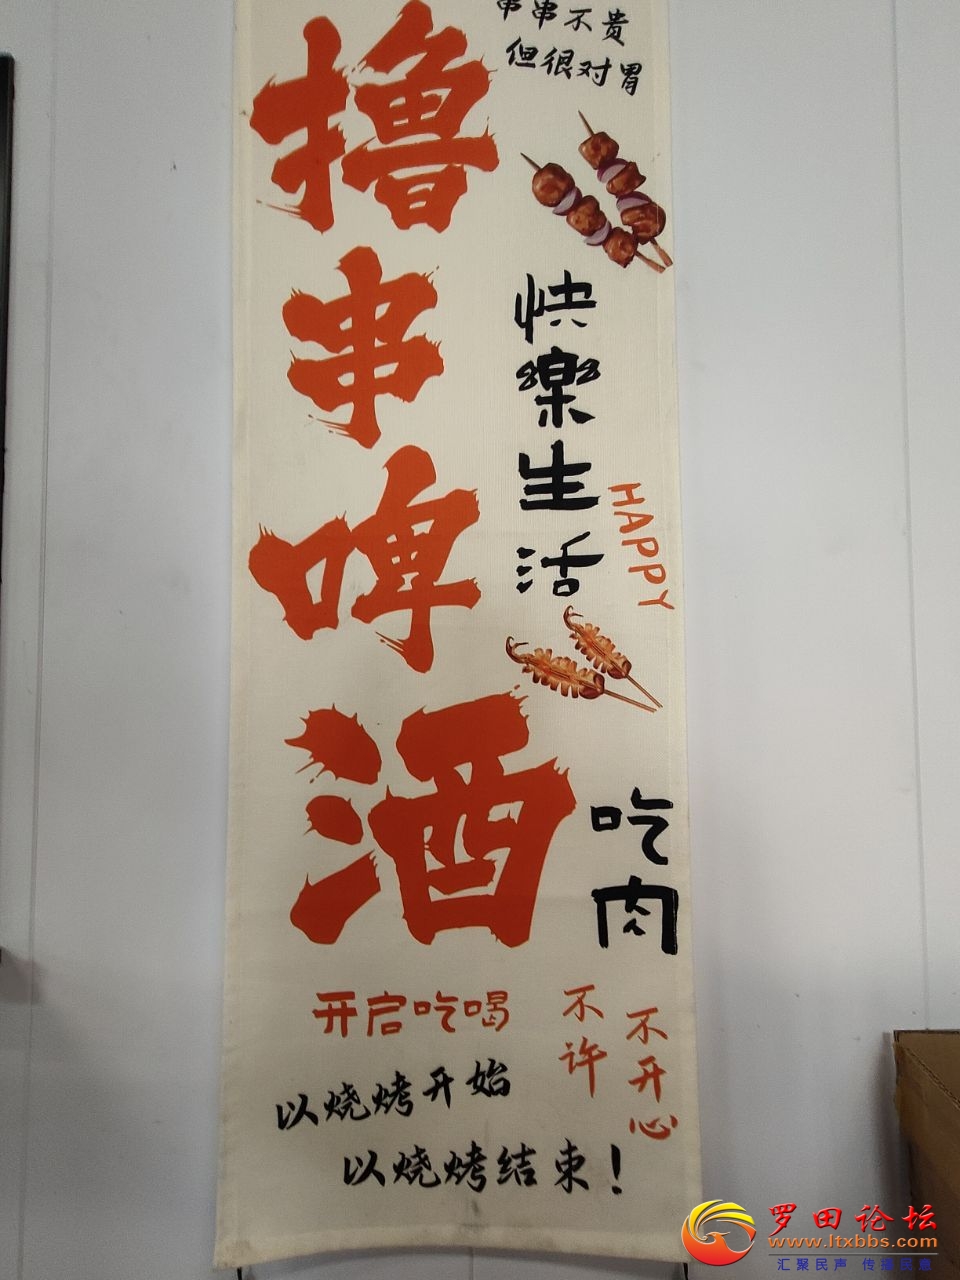 串串不贵
但很对胃
撸串啤酒
快樂生活
HAPPY
吃肉
不许
不开心
开启吃喝
以烧烤开始
以烧烤结束！
罗田论坛
www.ltxbbs.com
汇聚民声 传播信息